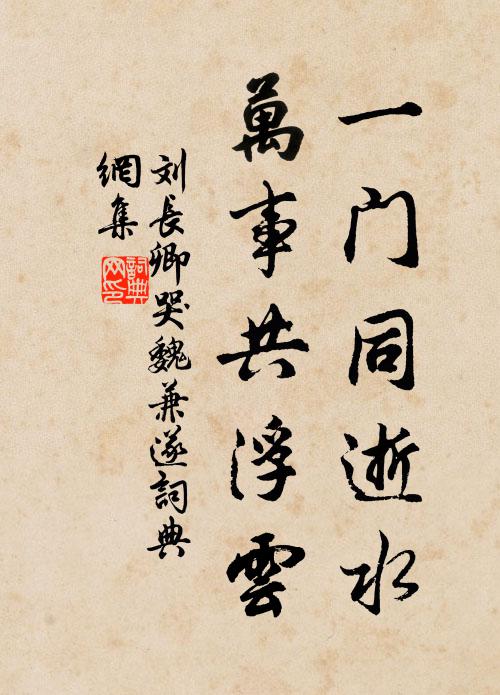 一门同逝水
萬事共浮雲
刘長卿哭魏兼遂詞典
網集
詞典
网印